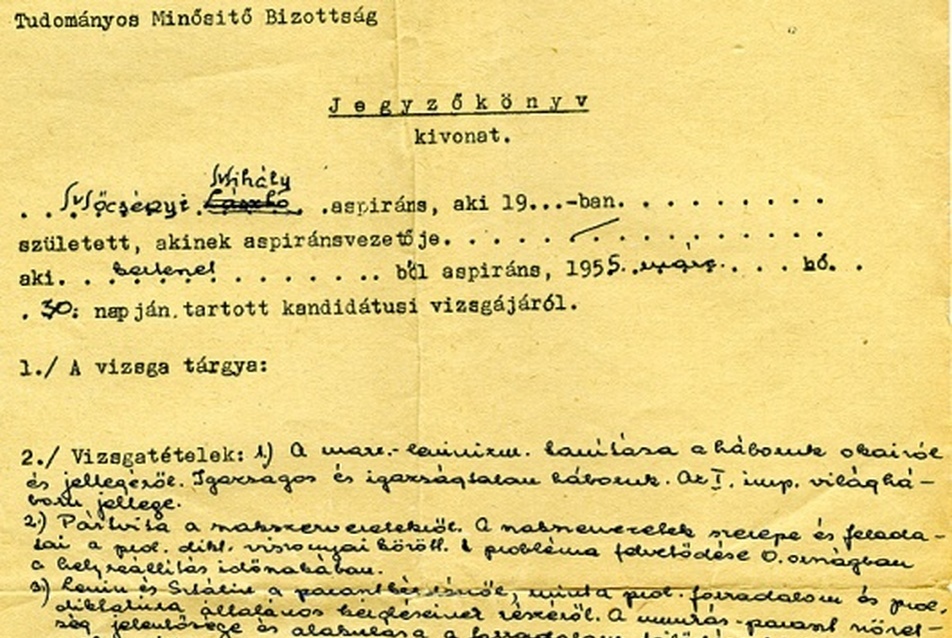 Tudományos Minősitő Bizottság
Jegyzőkönyv
kivonat.
Mihály
. . Mőcsényi László .aspiráns, aki 19...-ban. . . . . . . . .
született, akinek aspiránsvezetője. . . . . . . . . . . . . . .
aki. . kertészet . . . . . . . . ből aspiráns, 1955. . . . hó. .
. 30. napján.tartott kandidátusi vizsgájáról.
1./ A vizsga tárgya:
2./ Vizsgatételek: 1.) A marx.-leninizm. tanítása a háborúk okairól
és jellegéről. Igazságos és igazságtalan háborúk. Az I. imp. világhá-
ború jellege.
2.) Pártvita a szakszervezetekről. A szakszervezetek szerepe és felada-
tai a prol. dikt. viszonyai között. A probléma felvetődése O.országban
a helyreállítás időszakában.
3.) Lenin és Sztálin a parasztkérdésről, mint a prol. forradalom és prol.
diktatúra általános kérdéseinek részéről. A munkás-paraszt szövet-
ség jelentősége és alakulása a forradalom